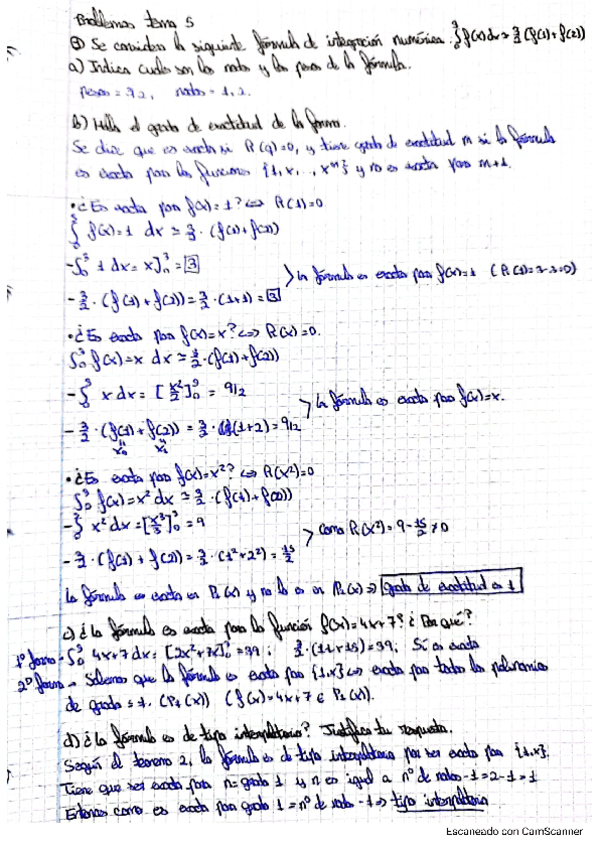 Problemas tema 5
① Se considera la siguiente fórmula de integración numérica: ∫₀³ f(x) dx ≃ 3/2 (f(1) + f(2))
a) Indica cuales son los nodos y los pesos de la fórmula.
pesos = 3/2, nodos = 1, 2.
b) Halla el grado de exactitud de la
Se dice que es exacta si R(q)=0, y tiene grado de exactitud m si la fórmula
es exacta para las funciones {1, x, .., xᵐ} y no es exacta para m+1.
• ¿Es exacta para f(x)=1? ⇔ R(1)=0
∫₀³ f(x)=1 dx ≃ 3/2 · (f(1)+f(2))
- ∫₀³ 1 dx = x]₀³ = 3
> La fórmula es exacta para f(x)=1 (R(1)=3-3=0)
- 3/2 · (f(1) + f(2)) = 3/2 · (1+1) = 3
• ¿Es exacta para f(x)=x? ⇔ R(x)=0.
∫₀³ f(x)=x dx ≃ 3/2 · (f(1)+f(2))
- ∫₀³ x dx = [x²/2]₀³ = 9/2
> La fórmula es exacta para f(x)=x.
- 3/2 · (f(1) + f(2)) = 3/2 · (1+2) = 9/2
• ¿Es exacta para f(x)=x²? ⇔ R(x²)=0
∫₀³ f(x)=x² dx ≃ 3/2 · (f(1)+f(2))
- ∫₀³ x² dx = [x³/3]₀³ = 9
> Como R(x²) = 9 - 15/2 ≠ 0
- 3/2 · (f(1) + f(2)) = 3/2 · (1²+2²) = 15/2
La fórmula es exacta en P₁(x) y no lo es en P₂(x) ⇒ grado de exactitud es 1
c) ¿La fórmula es exacta para la función f(x)=4x+7? ¿Por qué?
1º forma - ∫₀³ 4x+7 dx = [2x²+7x]₀³ = 39 ; 3/2 · (11+15) = 39; Sí es exacta
2º forma - Sabemos que la fórmula es exacta para {1,x} ⇔ exacta para todos los polinomios
de grado ≤ 1. (P₁(x)) (f(x)=4x+7 ∈ P₁(x)).
d) ¿La fórmula es de tipo interpolatorio? Justifica tu respuesta.
Según el teorema 2, la fórmula es de tipo interpolatorio por ser exacta para {1,x}.
Tiene que ser exacta para n=grado 1 y n es igual a nº de nodos -1 = 2-1 = 1
Entonces como es exacta para grado 1 = nº de nodos -1 ⇒ tipo interpolatorio
Escaneado con CamScanner